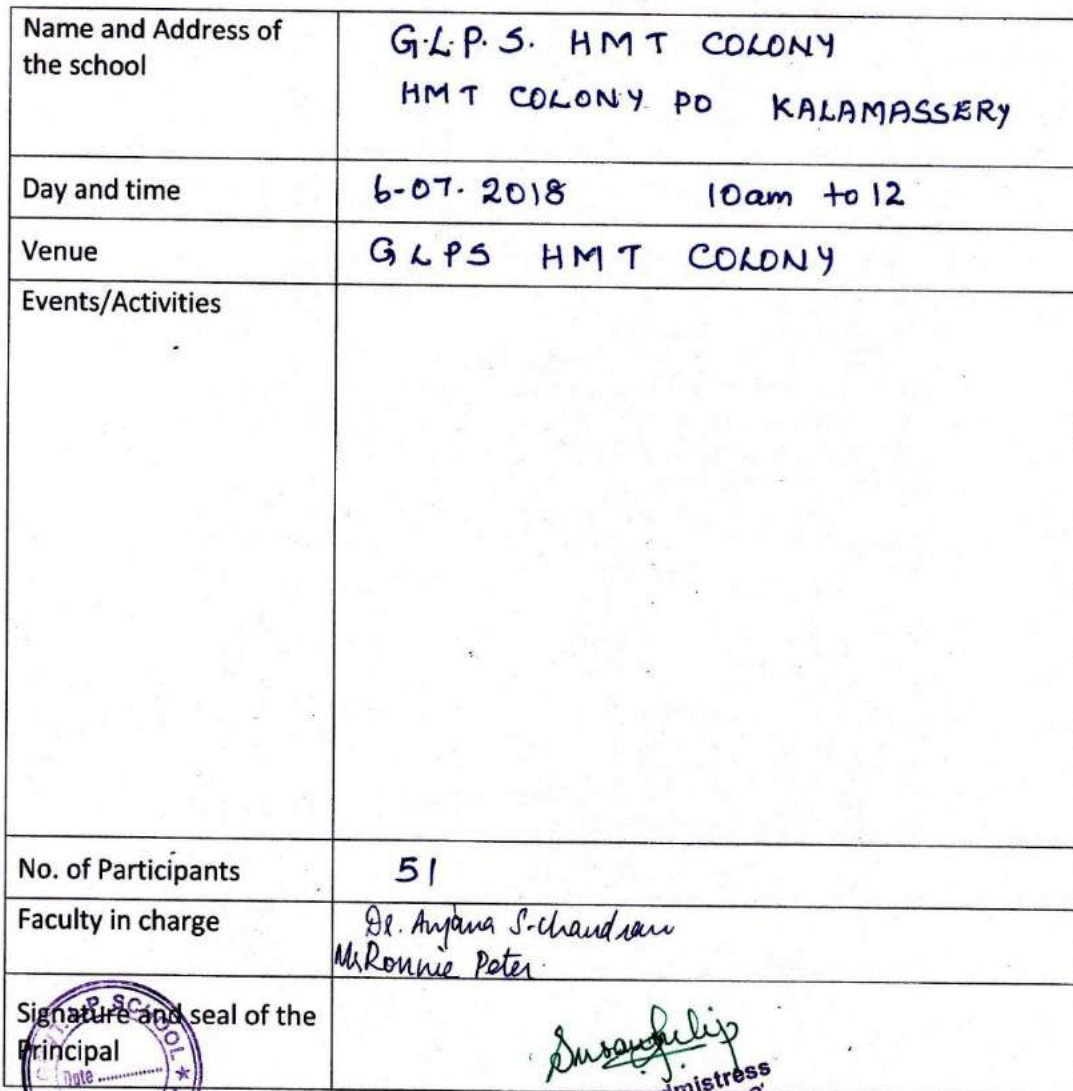 Name and Address of
the school
G.L.P.S. HMT COLONY
HMT COLONY PO KALAMASSERY
Day and time
6-07-2018 10am to 12
Venue
GLPS HMT COLONY
Events/Activities
No. of Participants
51
Faculty in charge
Dr. Anjana S. Chandran
Mr Ronnie Peter
Signature and seal of the
Principal
P. SCHOOL
Date